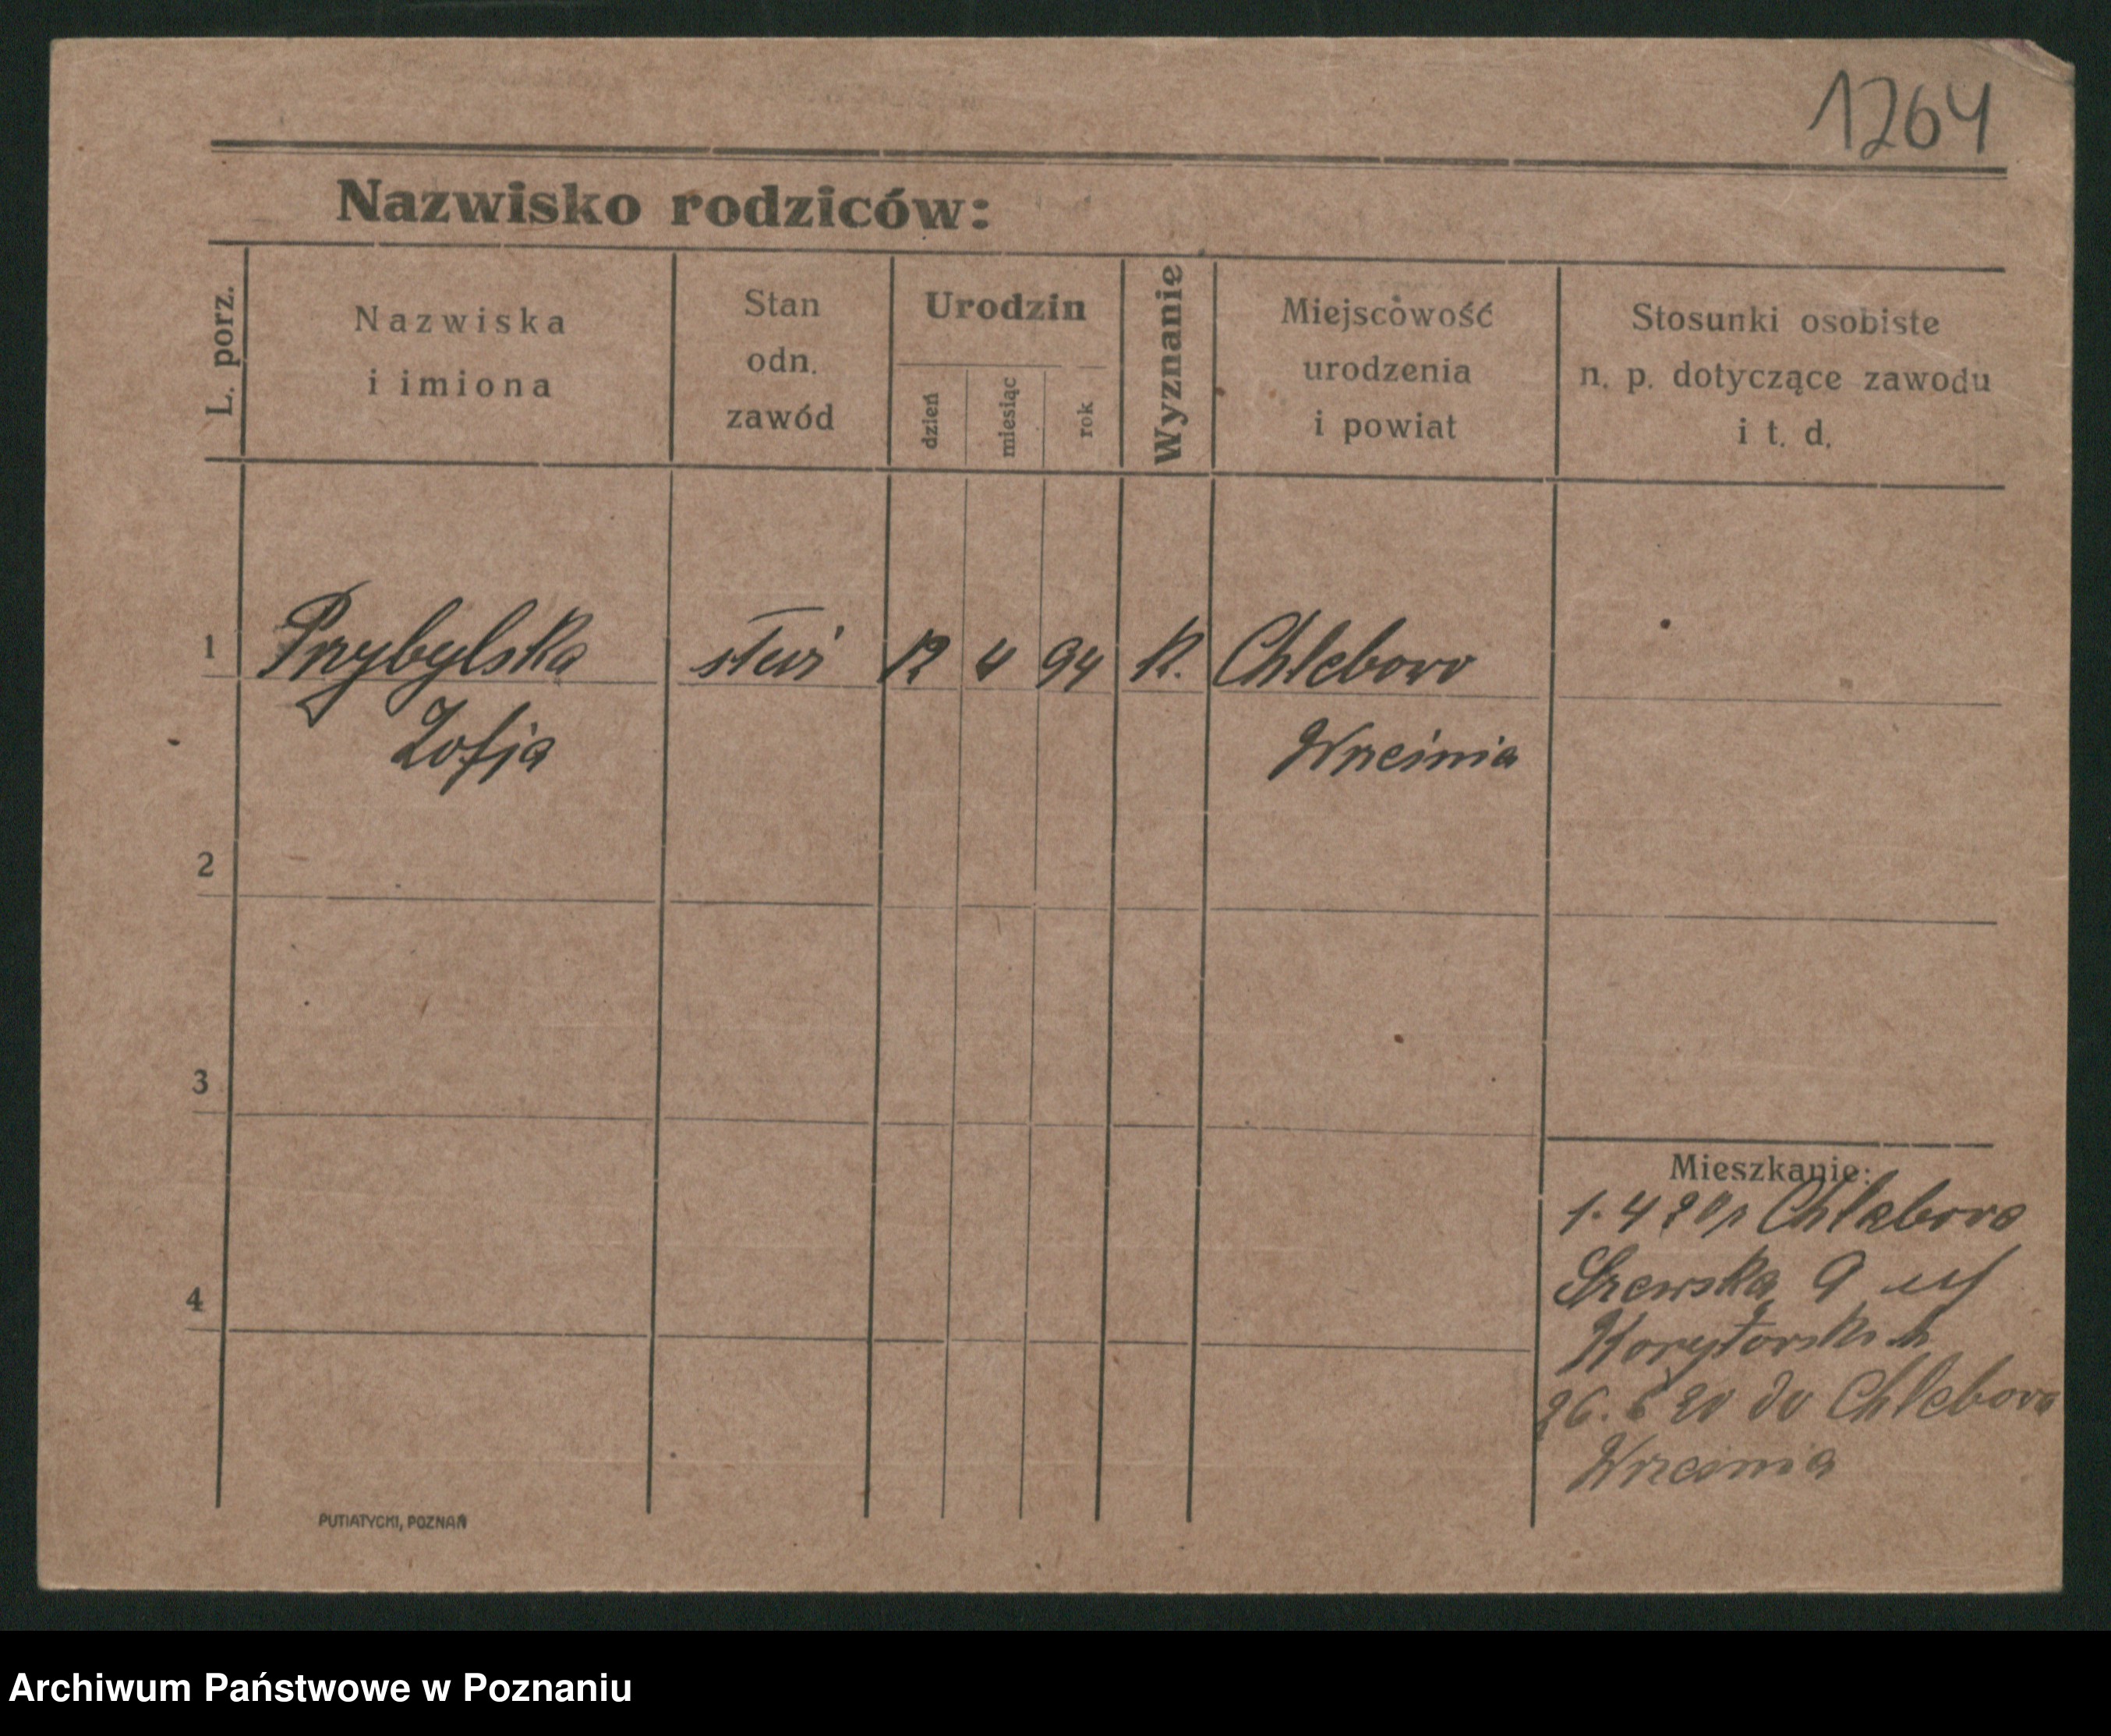 1264
Nazwisko rodziców:
L. porz.
Nazwiska
i imiona
Stan
odn.
zawód
Urodzin
dzień
miesiąc
rok
Wyznanie
Miejscowość
urodzenia
i powiat
Stosunki osobiste
n. p. dotyczące zawodu
i t. d.
1 Przybylska służ 12 4 94 K. Chłebowo
Zofja Września
2
3
4
Mieszkanie:
1. 4 20 Chłebowo
Szewska 9
26. 20 do Chłebowo
Września
PUTIATYCKI, POZNAŃ
Archiwum Państwowe w Poznaniu